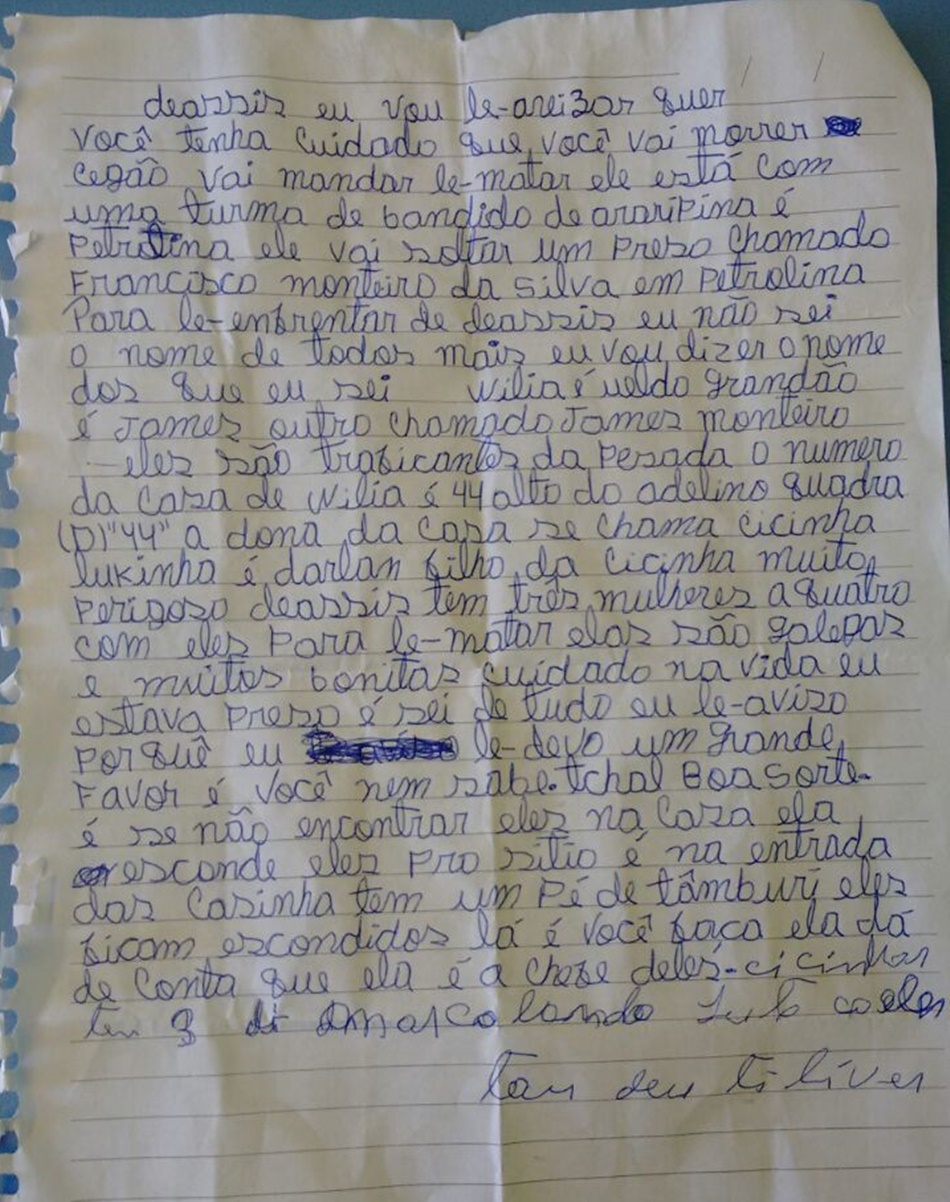 deassis eu vou le-aveizar quer
você tenha cuidado que você vai morrer
cegão vai mandar le-matar ele está com
uma turma de bandido de araripina é
Petrolina ele vai soltar um Preso chamado
Francisco monteiro da silva em Petrolina
Para le-enfrentar de deassis eu não sei
o nome de todos mais eu vou dizer o nome
dos que eu sei wilia é veldo grandão
é James outro chamado James monteiro
-eles são traficantes da Pesada o numero
da casa de wilia é 44 alto do adelino quadra
(D)"44" a dona da casa se chama cicinha
lukinha é darlan filho da cicinha muito
Perigoso deassis tem três mulheres a quatro
com eles Para le-matar elas são galegas
e muitos bonitas cuidado na vida eu
estava Preso é sei de tudo eu le-aviso
Porquê eu le-devo um grande
Favor é você nem sabe. tchal Boa Sorte.
é se não encontrar eles na casa ela
esconde eles Pro sitio é na entrada
das casinha tem um Pé de tâmburý eles
ficam escondidos lá é você faça ela dá
de conta que ela é a chefe deles-cicinhar
ten 3 di